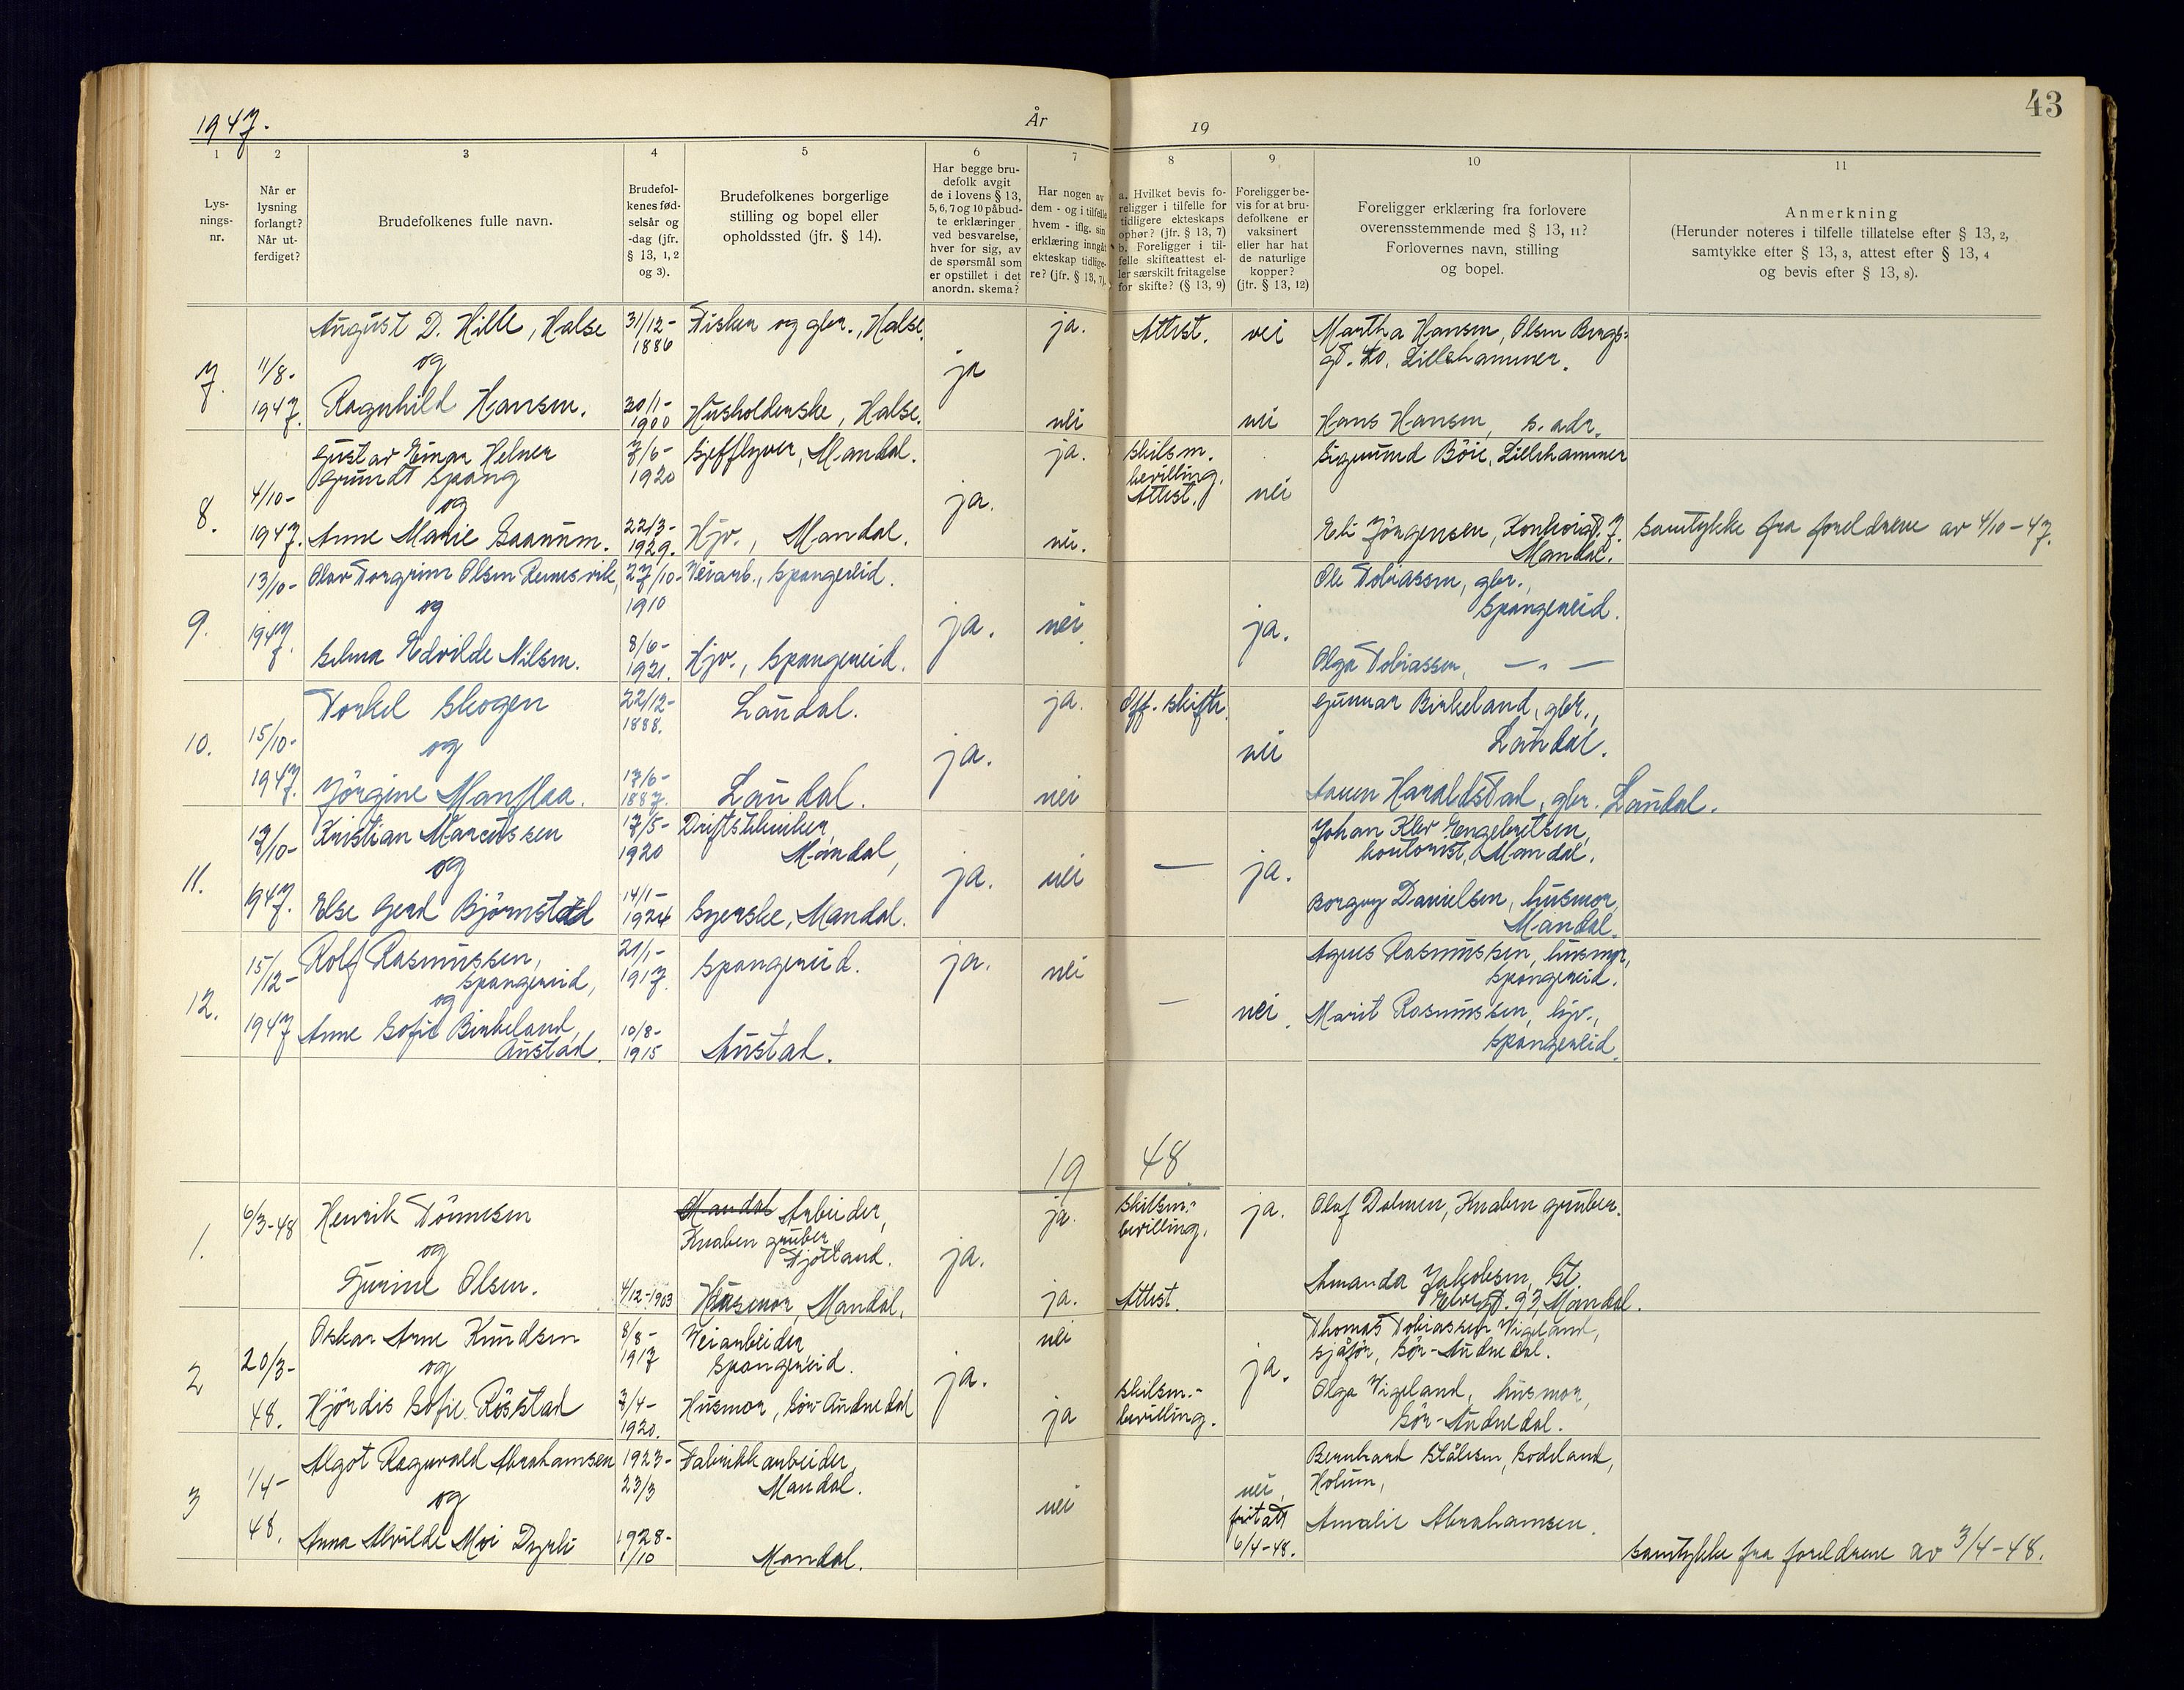 43
1947.
År
19
1
2
3
4
5
6
7
8
9
10
11
Lys-
nings-
nr.
Når er
lysning
forlangt?
Når ut-
ferdiget?
Brudefolkenes fulle navn.
Brudefol-
kenes fød-
selsår og
-dag (jfr.
§ 13, 1, 2
og 3).
Brudefolkenes borgerlige
stilling og bopel eller
opholdssted (jfr. § 14).
Har begge bru-
defolk avgit
de i lovens § 13,
5, 6, 7 og 10 påbud-
te erklæringer
ved besvarelse,
hver for sig, av
de spørsmål som
er opstillet i det
anordn. skema?
Har nogen av
dem - og i tilfelle
hvem - iflg. sin
erklæring inngått
ekteskap tidlige-
re? (jfr. § 13, 7).
a. Hvilket bevis fo-
religger i tilfelle for
tidligere ekteskaps
ophør? (jfr. § 13, 7)
b. Foreligger i til-
felle skifteattest el-
ler særskilt fritagelse
for skifte? (§ 13, 9)
Foreligger be-
vis for at bru-
defolkene er
vaksinert
eller har hat
de naturlige
kopper?
(jfr. § 13, 12)
Foreligger erklæring fra forlovere
overensstemmende med § 13, 11?
Forlovernes navn, stilling
og bopel.
Anmerkning
(Herunder noteres i tilfelle tillatelse efter § 13, 2,
samtykke efter § 13, 3, attest efter § 13, 4
og bevis efter § 13, 8).
7.
11/8-
1947.
August D. Hille, Halse
og
Ragnhild Hansen.
31/12-
1886
30/1-
1900
Fisker og gbr., Halse.
Husholderske, Halse.
ja
ja.
nei
Attest.
nei
nei
Martha Hansen, Olsen Bergs-
gt. 40, Lillehammer.
Hans Hansen, s. adr.
8.
4/10-
1947.
Gustav Einar Helner
Grundt Spang
og
Anne Marie Gaarum.
7/6-
1920
22/3-
1929.
Sjefflyver, Mandal.
Hjv., Mandal.
ja.
ja.
nei.
Skilsm.
bevilling.
Attest.
nei
Sigmund Böie, Lillehammer
Eli Jörgensen, 7.
Mandal.
Samtykke fra foreldrene av 4/10-47.
9.
13/10-
1947.
Olav Torgrim Olsen Remesvik,
og
Selma Edvilde Nilsen.
27/10-
1910
8/6-
1921.
Veiarb., Spangereid.
Hjv., Spangereid.
ja.
nei
ja.
Ole Tobiassen, gbr.,
Spangereid.
Olga Tobiassen, — " —
10.
15/10-
1947.
Torkel Skogen
og
Jörgine Manflaa.
22/12-
1888.
17/6-
1887.
Laudal.
Laudal.
ja.
ja.
nei
Off. skifte.
nei
Gunnar Birkeland, gbr.,
Laudal.
Haraldstad, gbr. Laudal.
11.
17/10-
1947.
Kristian Marcussen
og
Else Gerd Björnstad
17/5-
1920
14/1-
1924
Driftstekniker,
Mandal,
Syerske, Mandal.
ja.
nei
—
ja.
Johan Klev Engebretsen,
kontorist, Mandal.
Borgny Danielsen, husmor,
Mandal.
12.
15/12-
1947
Rolf Rasmussen,
Spangereid,
og
Anne Sofie Birkeland,
Austad.
21/1-
1917.
10/8-
1915
Spangereid.
Austad.
ja.
nei
—
nei.
Agnes Rasmussen, husmor,
Spangereid.
Marit Rasmussen, hjv.,
Spangereid.
19 48
1.
6/3-48
Henrik Tönnesen
og
Gurine Olsen.
4/12-1903
Mandal Arbeider,
Knaben gruber
Fjotland.
Husmor, Mandal.
ja.
ja.
ja.
Skilsm.-
bevilling.
Attest.
ja.
Olaf Dalmen, Knaben gruber.
Amanda Jakobsen, St.
Elvegt. 93, Mandal.
2
20/3-
48.
Oskar Arne Knudsen
og
Hjördis Sofie Rösstad
8/8-
1917
7/4-
1920.
Veiarbeider,
Spangereid.
Husmor, Sör-Audnedal
ja.
nei
ja
Skilsm.-
bevilling.
ja.
Thomas Tobiassen Vigeland,
sjåför, Sör-Audnedal.
Olga Vigeland, husmor,
Sör-Audnedal.
3
1/4-
48.
Algot Ragnvald Abrahamsen
og
Anna Alvilde Moi Dyrli
1923-
23/3
1928-
1/10
Fabrikkarbeider,
Mandal.
Mandal.
nei
nei,
fritatt
6/4-48.
Bernhard Stålesen, Sodeland,
Holum,
Amalie Abrahamsen.
Samtykke fra foreldrene av 3/4-48.